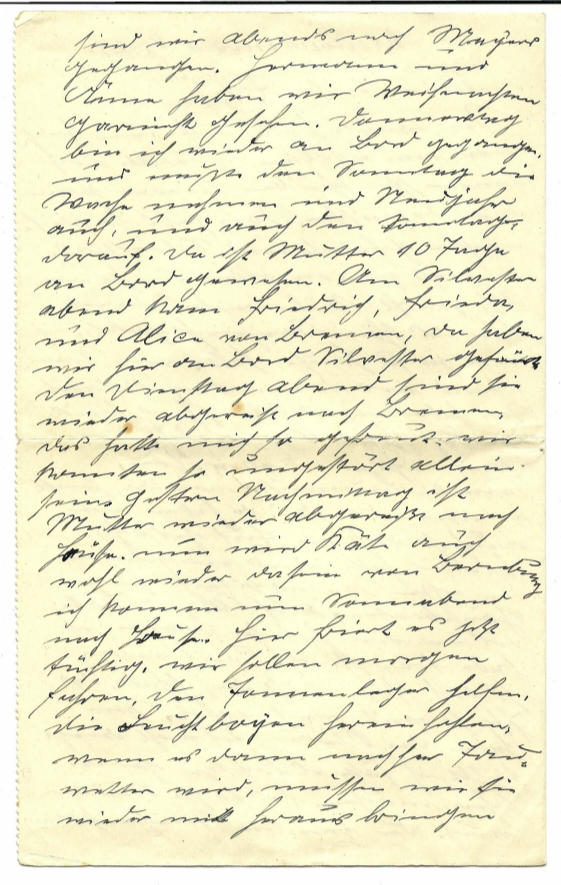 sind wir abends nach Mayers
gegangen. Hermann und
Änne haben wir Weihnachten
garnicht gesehen. Donnerstag
bin ich wieder an Bord gegangen.
und mußte den Sonntag die
Wache nehmen und Neujahr
auch, und auch den Sonntage,
darauf. Da ist Mutter 10 Tage
an Bord gewesen. Am Silvester
abend kam Friedrich, Frieda,
und Alice von Bremen, da haben
wir hier an Bord Silvester gefeiert
den Dienstag abend sind sie
wieder abgereist nach Bremen.
das hatte mich so gefreut. wir
konnten so ungestört allein
sein. gestern Nachmittag ist
Mutter wieder abgereist nach
Hause. nun wird Käte auch
wohl wieder da sein von Bernburg
ich komme nun Sonnabend
nach Hause. Hier friert es jetzt
tüchtig. wir sollen morgen
fahren, den Tonnenleger helfen,
die Leuchtbojen herein hohlen,
wenn es dann nachher Tau-
wetter wird, müssen wir sie
wieder mit heraus bringen